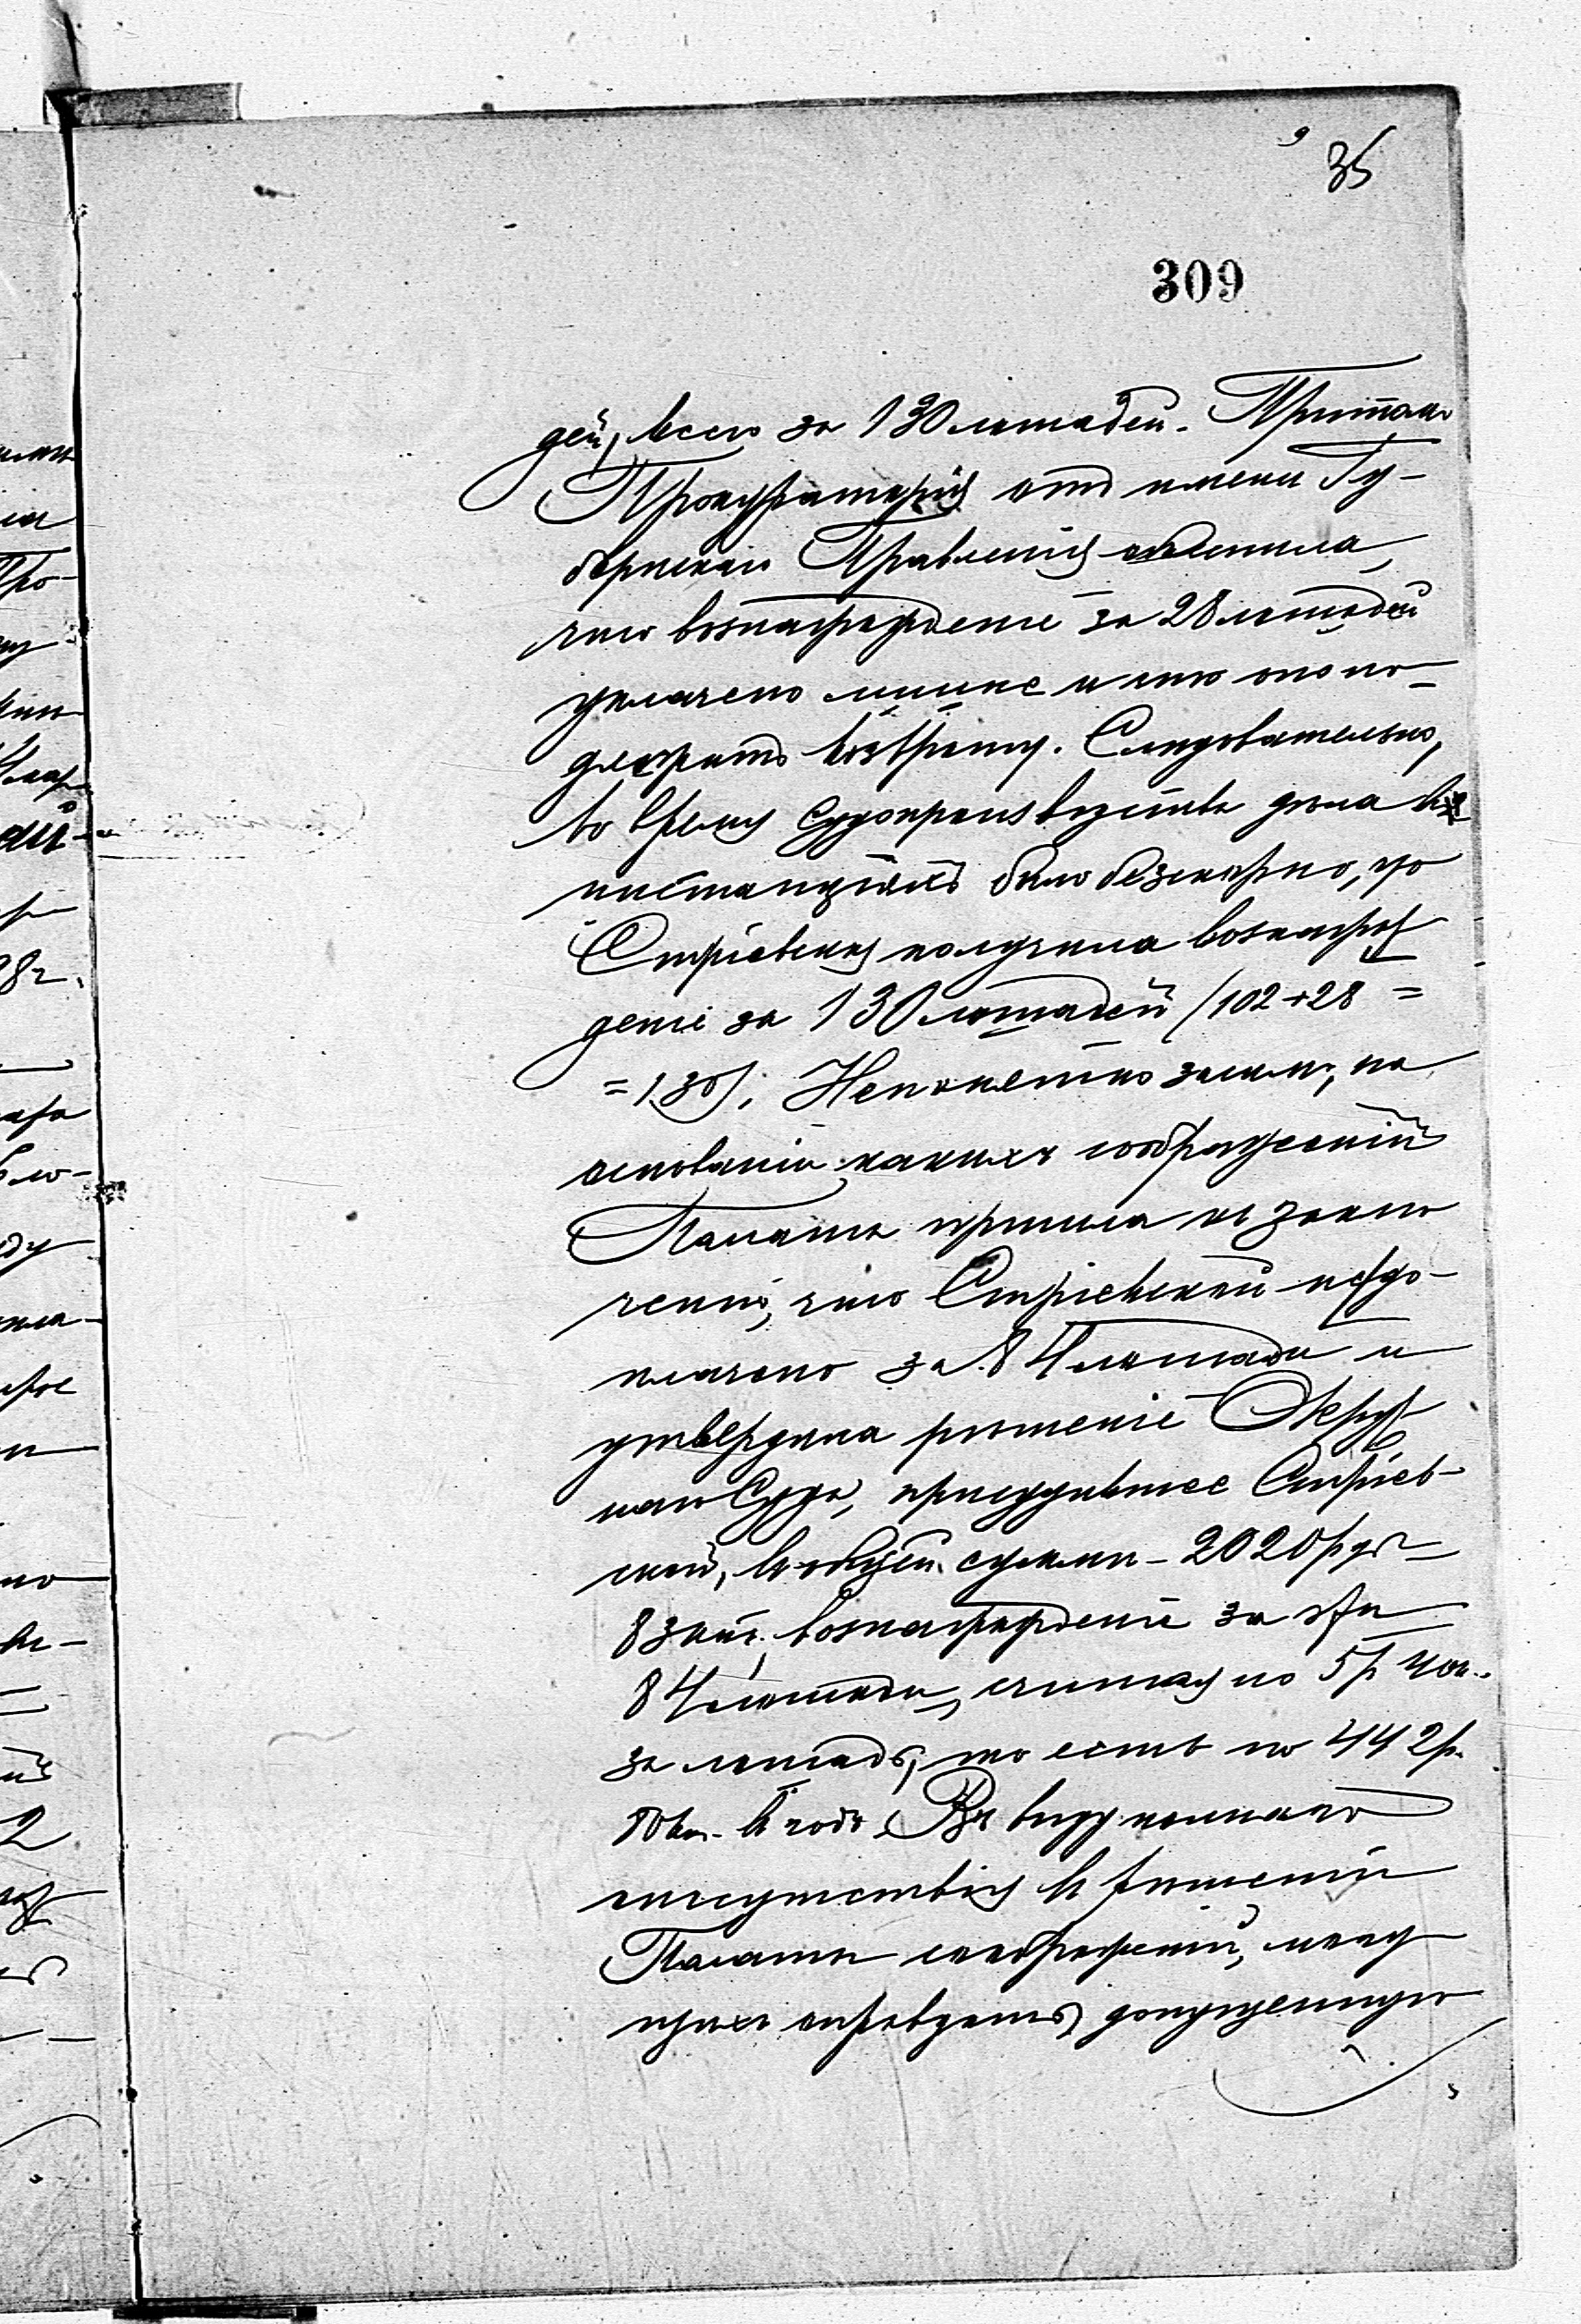 35
309
дей, всего за 130 лошадей. Притомъ
Прокуратория отъ имени Гу-
бернскаго Правленія объяснила,
что вознагражденіе за 28 лошадей
уплачено лишнее и что оно по-
длежитъ возврату. Следовательно,
во время судопроизводства дела въ
инстанціяхъ было безспорно, что
Стріевская получила вознаграж
деніе за 130 лошадей (102+28=
=130). Непонятно затемъ, на
основаніи какихъ соображеній
Палата пришла къ заклю
ченію, что Стріевской недо-
плачено за 84 лошади и
утвердила решеніе Окруж
наго Суда, присудившее Стріев-
ской, въ общей сумме 2020 руб
83 коп. вознагражденіе за эти
84 лошади, считая по 5 р 40 к.
за лошадь, то есть по 442 р.
80 к. въ годъ. Въ виду полнаго
отсутствія въ решеніи
Палаты соображеній, могу
щихъ оправдать допущенную